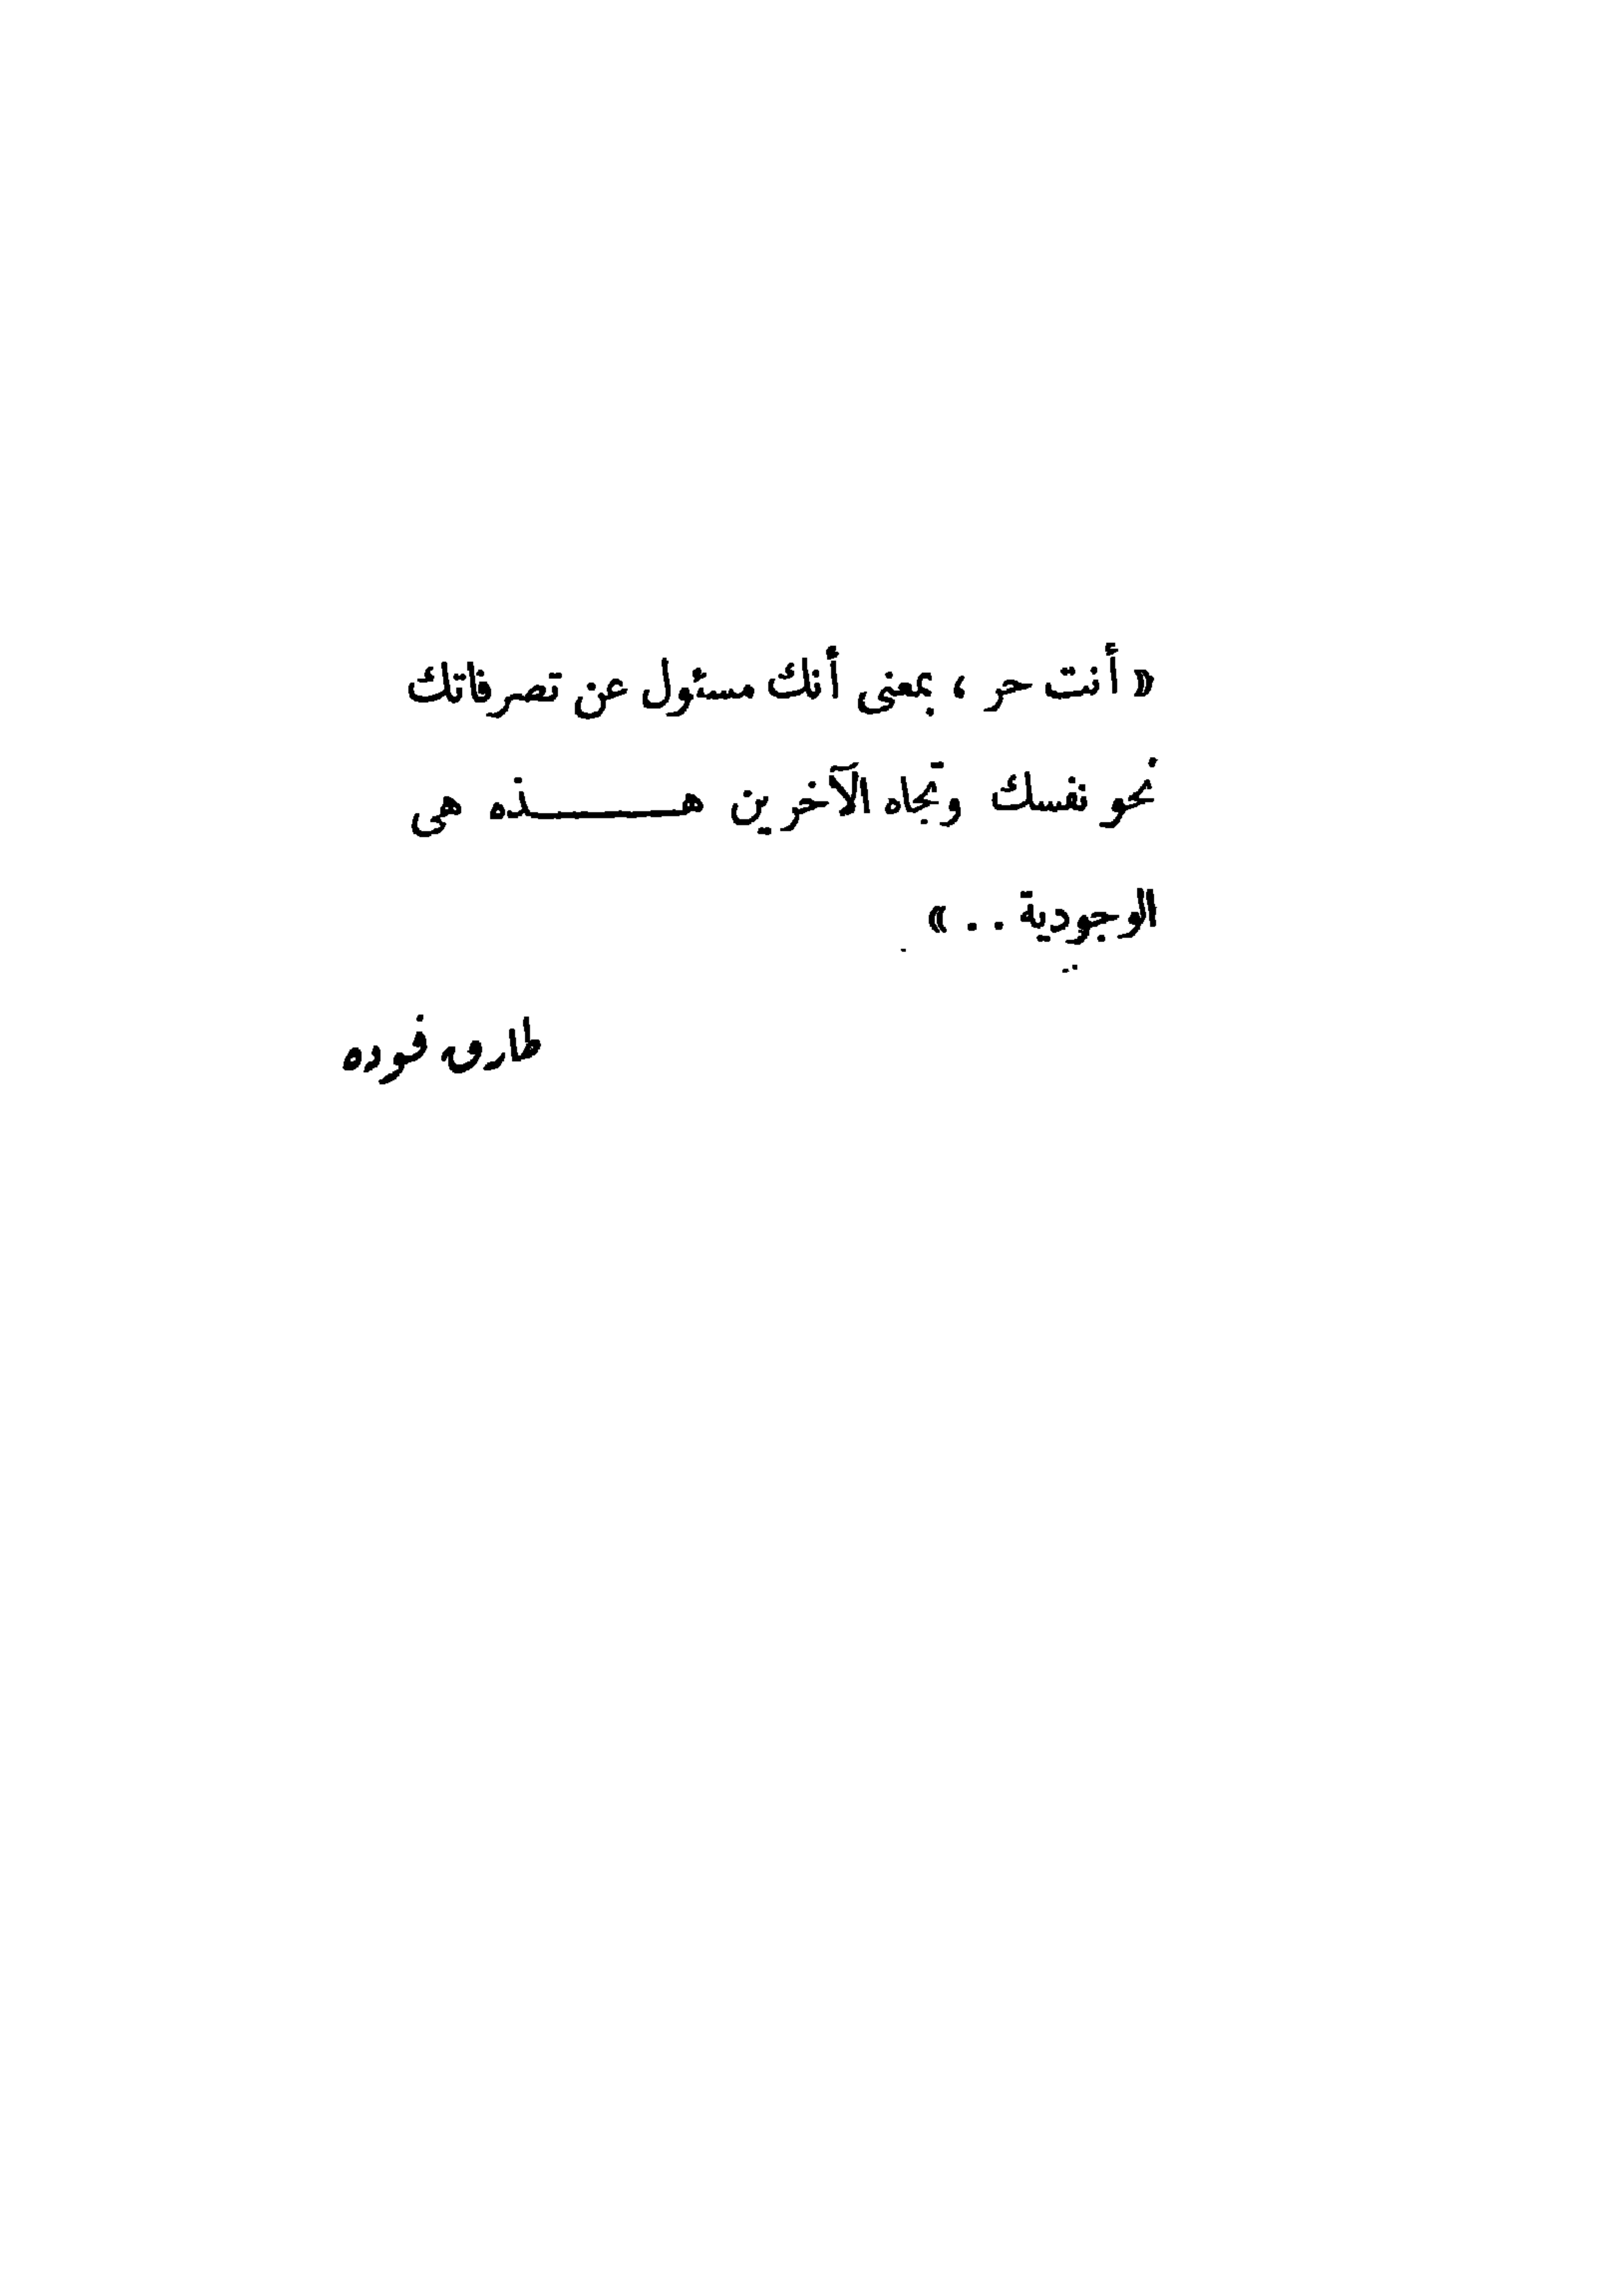 « أنت حر ، بمعنى أنك مسئول عن تصرفاتك
نحو نفسك وتجاه الآخرين هـــــــذه هى
الوجودية . . »
طارق فوده